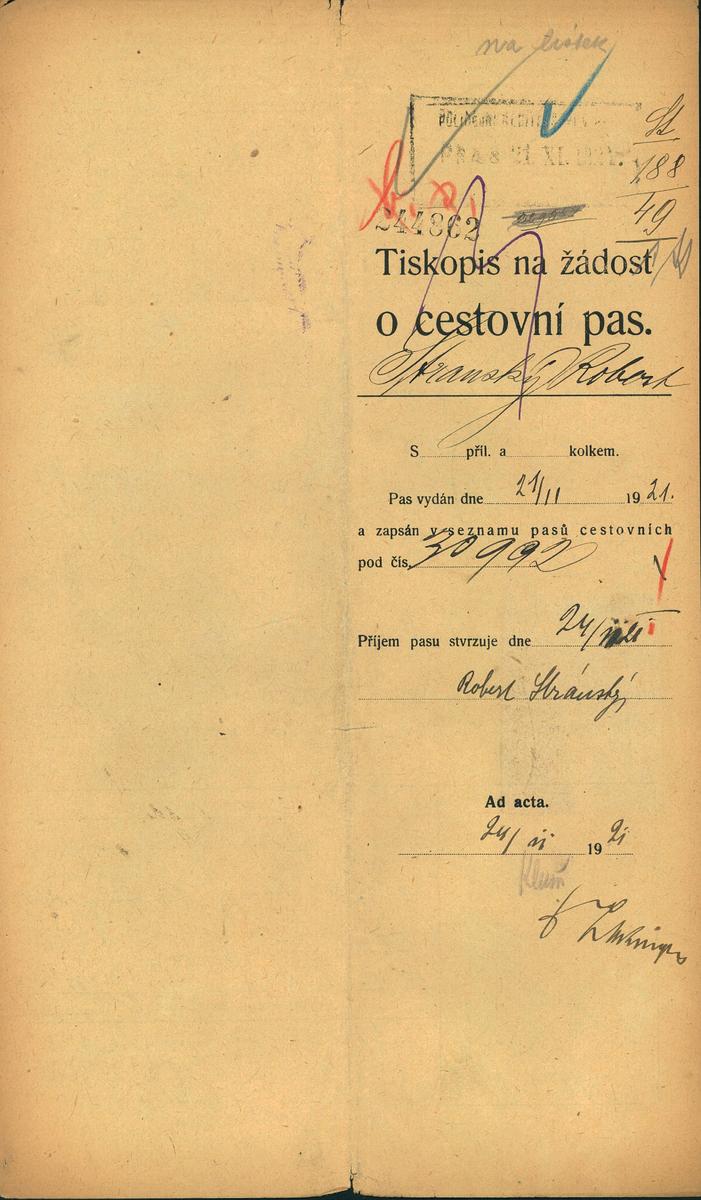 na lístek
POLICEJNÍ ŘEDITELSTVÍ
PRAHA 21. XI. 1921.
St
188
49
244862
Tiskopis na žádost
o cestovní pas.
Stránský Robert
S příl. a kolkem.
Pas vydán dne 21/11 1921.
a zapsán v seznamu pasů cestovních
pod čís. 30992
Příjem pasu stvrzuje dne 24/
Robert Stránský
Ad acta.
24/ ii 1921